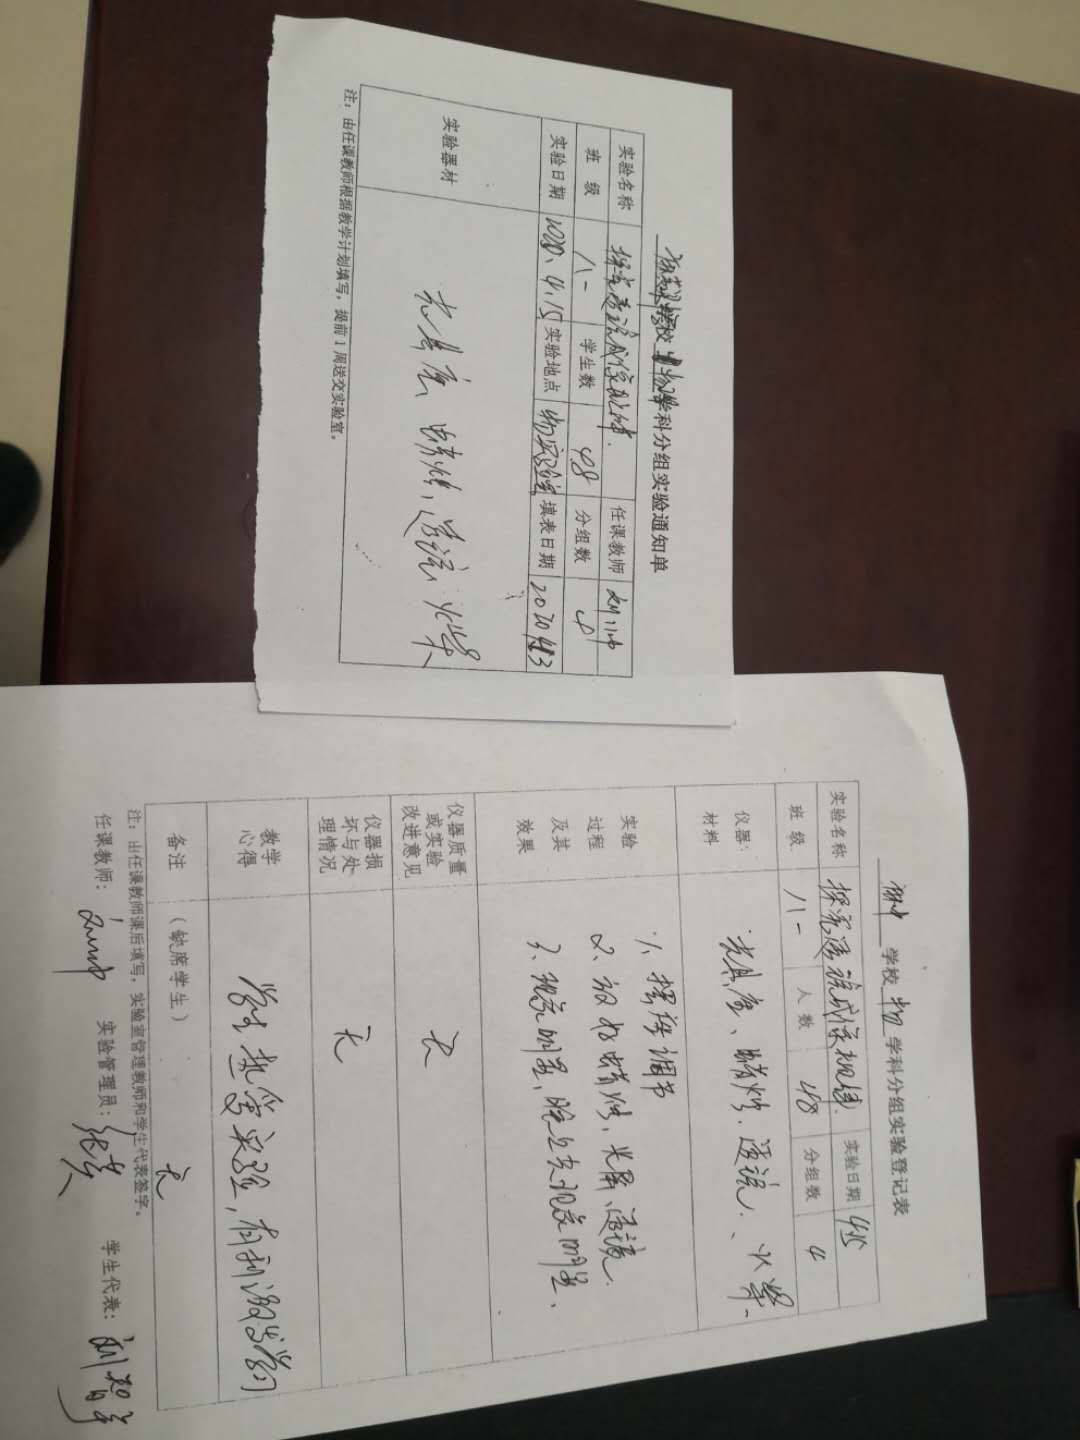 学校 学科分组实验通知单
实验名称 探究透镜成像规律 任课教师
班级 八一 学生数 48 分组数 4
实验日期 2020.4.15 实验地点 物实验室 填表日期 2020 4.13
实验器材 光具座、蜡烛、透镜、火柴
注：由任课教师根据教学计划填写，提前1周送交实验室。
学校 物 学科分组实验登记表
实验名称 探究透镜成像规律 实验日期 4.15
班级 八一 人数 48 分组数 4
仪器：材料 光具座、蜡烛、透镜、火柴
实验过程及其效果 1、
调节
2、放好蜡烛、光屏、透镜
3、观察
仪器质量或实验改进意见 无
仪器损坏与处理情况 无
教学心得 学生热爱实验，有利激发学习
备注 （缺席学生） 无
注：由任课教师课后填写，实验室管理教师和学生代表签字。
任课教师： 实验管理员： 学生代表：